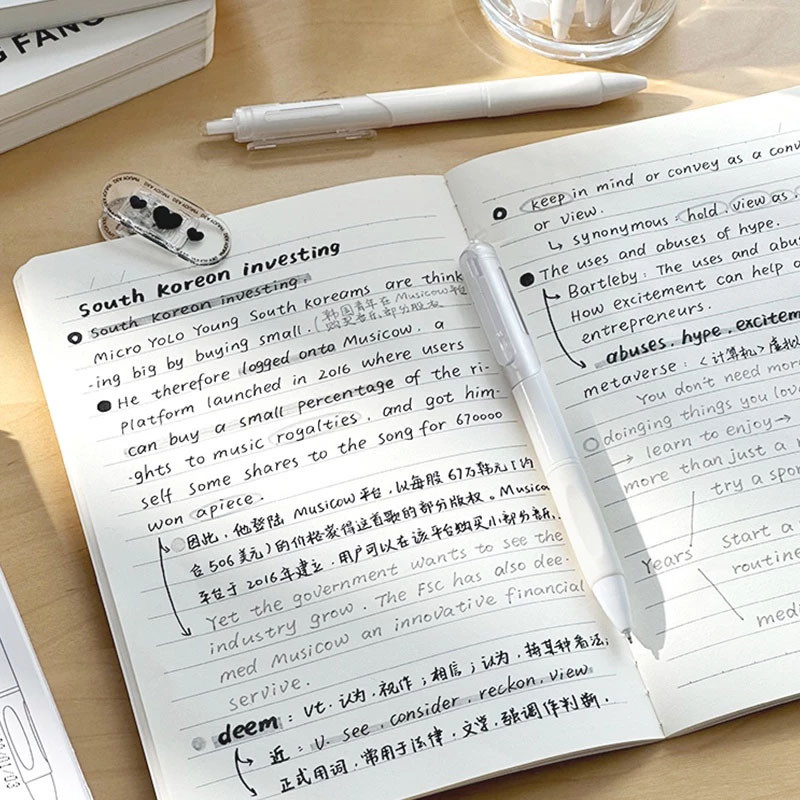 G FANG
South Korean investing
South Korean investing.
Micro YOLO Young South Koreans are think
-ing big by buying small. (韩国青年在 Musicow 平台
购买音乐部分股权
He therefore logged onto Musicow, a
platform launched in 2016 where users
can buy a small percentage of the ri-
-ghts to music rogalties, and got him-
self some shares to the song for 670000
won apiece.
因此，他登陆 Musicow平台，以每股 67万韩元 (约
合506美元) 的价格获得这首歌的部分版权。Musicow
平台于 2016年建立，用户可以在该平台购买小部分音乐
Yet the government wants to see the
industry grow. The FSC has also dee-
med Musicow an innovative financial
servive.
deem : vt. 认为，视作；相信；认为，持某种看法；
近 : v. see, consider, reckon, view
正式用词，常用于法律，文学，强调作判断.
keep in mind or convey as a conv
or view.
↳ synonymous: hold, view as,
The uses and abuses of hype.
Bartleby: The uses and abu
How excitement can help a
entrepreneurs.
abuses, hype, excitem
metaverse: <计算机> 虚拟
You don't need more
doinging things you love
→ learn to enjoy →
more than just a
try a spor
Years
Start a
routine
medi